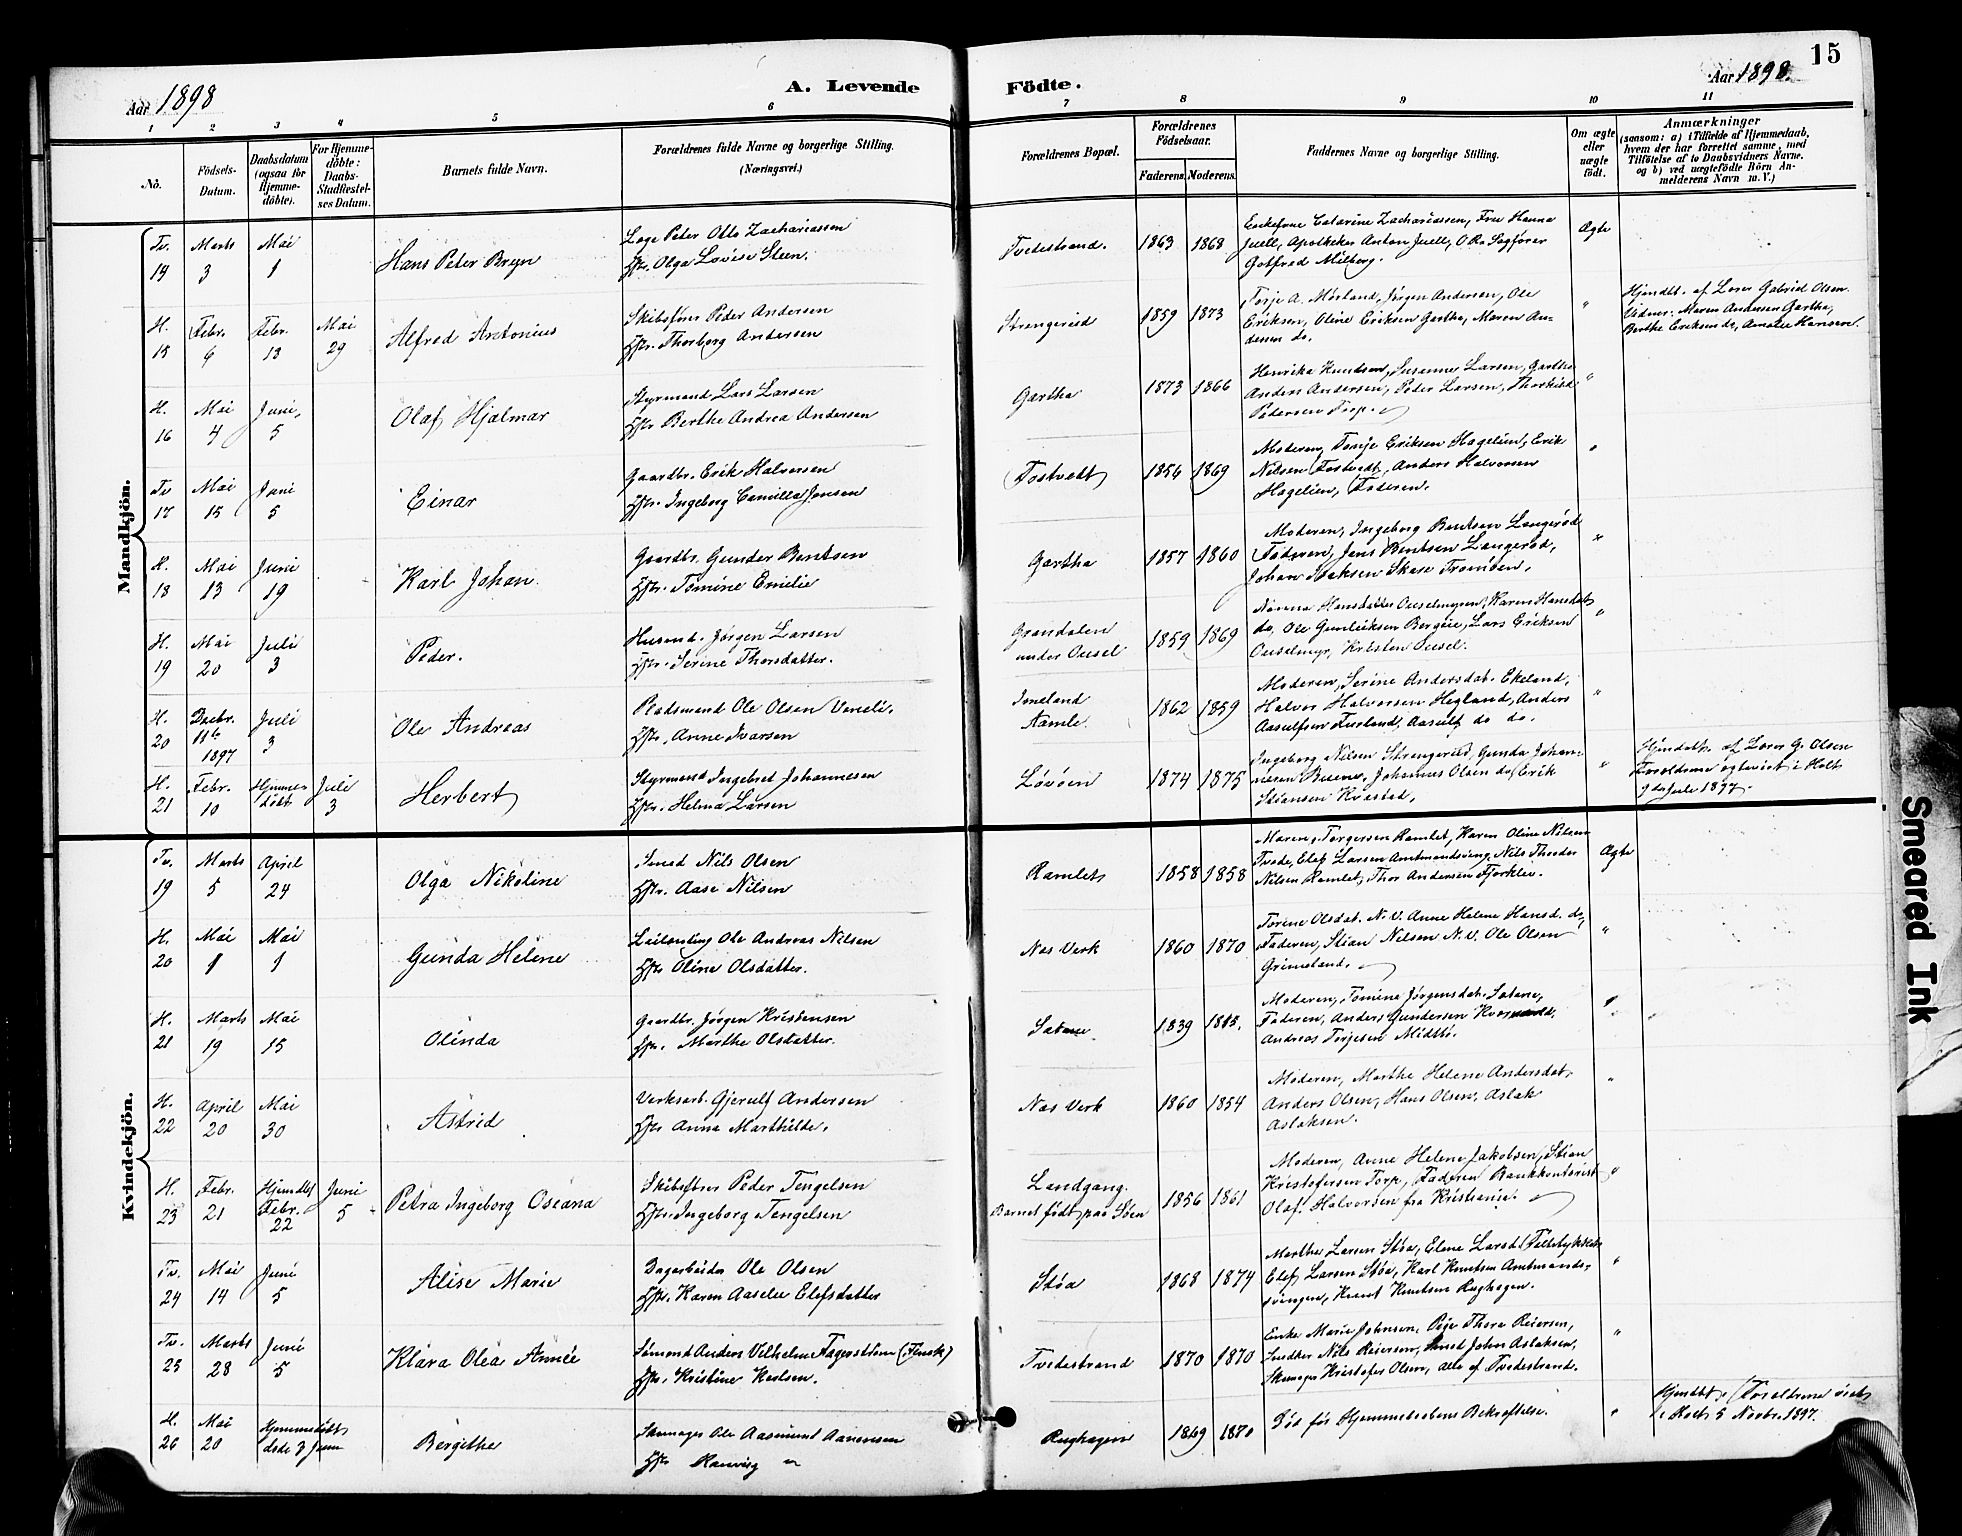 15
Aar 1898
A. Levende
Födte.
Aar 1898.
1 2 3 4 5 6 7 8 9 10 11
No.
Födsels-
Datum.
Daabsdatum
(ogsaa for
Hjemme-
döbte).
For Hjemme-
döbte:
Daabs-
Stadfæstel-
ses Datum.
Barnets fulde Navn.
Forældrenes fulde Navne og borgerlige Stilling.
(Næringsvei.)
Forældrenes Bopæl.
Forældrenes
Födselsaar.
Faderens. Moderens.
Faddernes Navne og borgerlige Stilling.
Om ægte
eller
uægte
födt.
Anmærkninger
(saasom: a) i Tilfælde af Hjemmedaab,
hvem der har forrettet samme, med
Tilföielse af to Daabsvidners Navne,
og b) ved uægtefödte Börn An-
melderens Navn m. V.)
Mandkjön.
Tv. 14 Marts 3 Mai 1
Hans Peter Bryn
Peter Otto Zachariassen
Hstr. Olga Lovise Steen.
Tvedestrand.
1863 1868
Catarine Zachariassen, Fru Hanna
Juell, Apotheker Anton Juell, O.R. Sagförer
Gotfred Milberg.
Ægte
H. 15 Febr. 6 Febr. 13 Mai 29
Alfred Antonius
Skibsförer Peder Andersen
Hstr. Thorborg Andersen
Strengereid
1859 1873
Torje A. Mörland, Jörgen Andersen, Ole
Eriksen, Oline Eriksen Gartha, Maren An-
dersen do.
"
Hjemdbt. af Lærer Gabriel Olsen
Vidner: Maren Andersen Gartha,
Berthe Eriksen do, Amalie Hansen.
H. 16 Mai 4 Juni 5
Olaf Hjalmar
Styrmand Lars Larsen
Hstr Berthe Andrea Andersen
Gartha
1873 1866
Henrika Knudsen, Susanne Larsen, Gartha
Anders Andersen, Peter Larsen,
Pedersen Torp.
"
Tv 17 Mai 15 Juni 5
Einar
Gaardbr. Erik Halvorsen
Hstr. Ingeborg Camilla Jensen
Tostvedt
1856 1869
Moderen, Tonje Eriksen Hagelien, Erik
Nilsen Tostvedt, Anders Halvorsen
Hagelien, Faderen.
"
H. 18 Mai 13 Juni 19
Karl Johan
Gaardbr. Gunder Bentsen
Hstr. Tomine Emelie
Gartha
1857 1860
Moderen, Ingeborg Bentsen Langeröd
Faderen, Jens Bentsen Langeröd,
Johan Isaksen Skase Tromöen.
"
H. 19 Mai 20 Juli 3
Peder.
Husmd. Jörgen Larsen
Hstr. Serine Thorsdatter.
Grændalen
under Ousel
1859 1869
Hansdatter Ouselmyren, Karen Hansdat.
do, Ole Gundersen Bergeie, Lars Eriksen
Ouselmyr, Kristen Ousel.
"
H. 20 Decbr. 11te 1897 Juli 3
Ole Andreas
Pladsmand Ole Olsen
Hstr. Anne Ivarsen
Aamle.
1862 1859
Moderen, Serine Andersdat. Ekeland,
Halvor Halvorsen Hegland, Anders
Aasulfsen Fueland, Aasulf do do.
"
H. 21 Febr. 10 Hjemme-
döbt Juli 3
Herbert
Styrmand Ingebret Johannesen
Hstr. Helma Larsen
Lövöen
1874 1875
Ingeborg Nilsen Strengereid, Gunda Johan-
nesen Buene, Johannes Olsen do, Erik
Stiansen Kvastad.
"
Hjemdbt. af Lærer G. Olsen
Forældrene ægteviet i Holt
9de Juli 1897.
Kvindekjön.
Tv. 19 Marts 5 April 24
Olga Nikoline
Smed Nils Olsen
Hstr. Aase Nilsen
Ramlet
1858 1858
Maren Torgersen Ramlet, Karen Oline Nilsen
Tvede, Elef Larsen Amtmandsving, Nils Theodor
Nilsen Ramlet, Thor Andersen Fjærkleiv.
Ægte
H. 20 Mai 1 Mai 1
Gunda Helene
Leilending Ole Andreas Nilsen
Hstr Oline Olsdatter.
Næs Verk
1860 1870
Torine Olsdat. N.V. Anne Helene Hansd. do,
Faderen, Stian Nilsen N.V. Ole Olsen
Grimeland.
"
H. 21 Marts 19 Mai 15
Olinda
Gaardbr. Jörgen Kristensen
Hstr. Marthe Olsdatter.
1839
Moderen, Tomine Jörgensdat.
Faderen, Anders Gundersen
Andreas Terjesen Midtbö.
"
H. 22 April 20 Mai 30
Astrid
Verksarb. Gjerulf Andersen
Hstr Anna Marthilde.
Næs Verk
1860 1854
Moderen, Marthe Helene Andersdat,
Anders Olsen, Hans Olsen, Aslak
Aslaksen.
"
H. 23 Febr. 21 Hjemdbt
Febr. 22 Juni 5
Petra Ingeborg Oseana
Skibsförer Peder Tengelsen
Hstr. Ingeborg Tengelsen
Landgang.
Barnet födt paa Söen
1856 1861
Moderen, Anne Helene Jakobsen, Stian
Kristofersen Torp, Faderen Bankkontorist
Olaf Halvorsen fra Kristiania.
"
Tv. 24 Mai 14 Juni 5
Alise Marie
Dagarbeider Ole Olsen
Hstr. Karen Aaselie Elefsdatter
Stöa
1868 1874
Marthe Larsen Stöa, Elene Larsd.
Elef Larsen Stöa, Karl Knutsen Amtmands-
svingen, Knut Knutsen Rughagen.
"
Tv. 25 Marts 28 Juni 5
Klara Olea Annie
Sömand Anders Vilhelm Fagerström (Finsk)
Hstr. Kristine Karlsen.
Tvedestrand
1870 1870
Enke Marie Johnsen, Pige Thora Reiersen,
Snedker Nils Reiersen, Smed John Aslaksen,
Skomager Kristofer Olsen, alle af Tvedestrand.
"
H. 26 Mai 20 Hjemmedöbt
döde 3 Juni
Bergithe
Skomager Ole Aasmund Aanonsen
Hstr Ranveig "
Rughagen
1869 1870
Död för Hjemmedaabens Bekræftelse.
"
Hjemdbt. Forældrene viet
i Holt 5 Novbr. 1897.
Smeared Ink